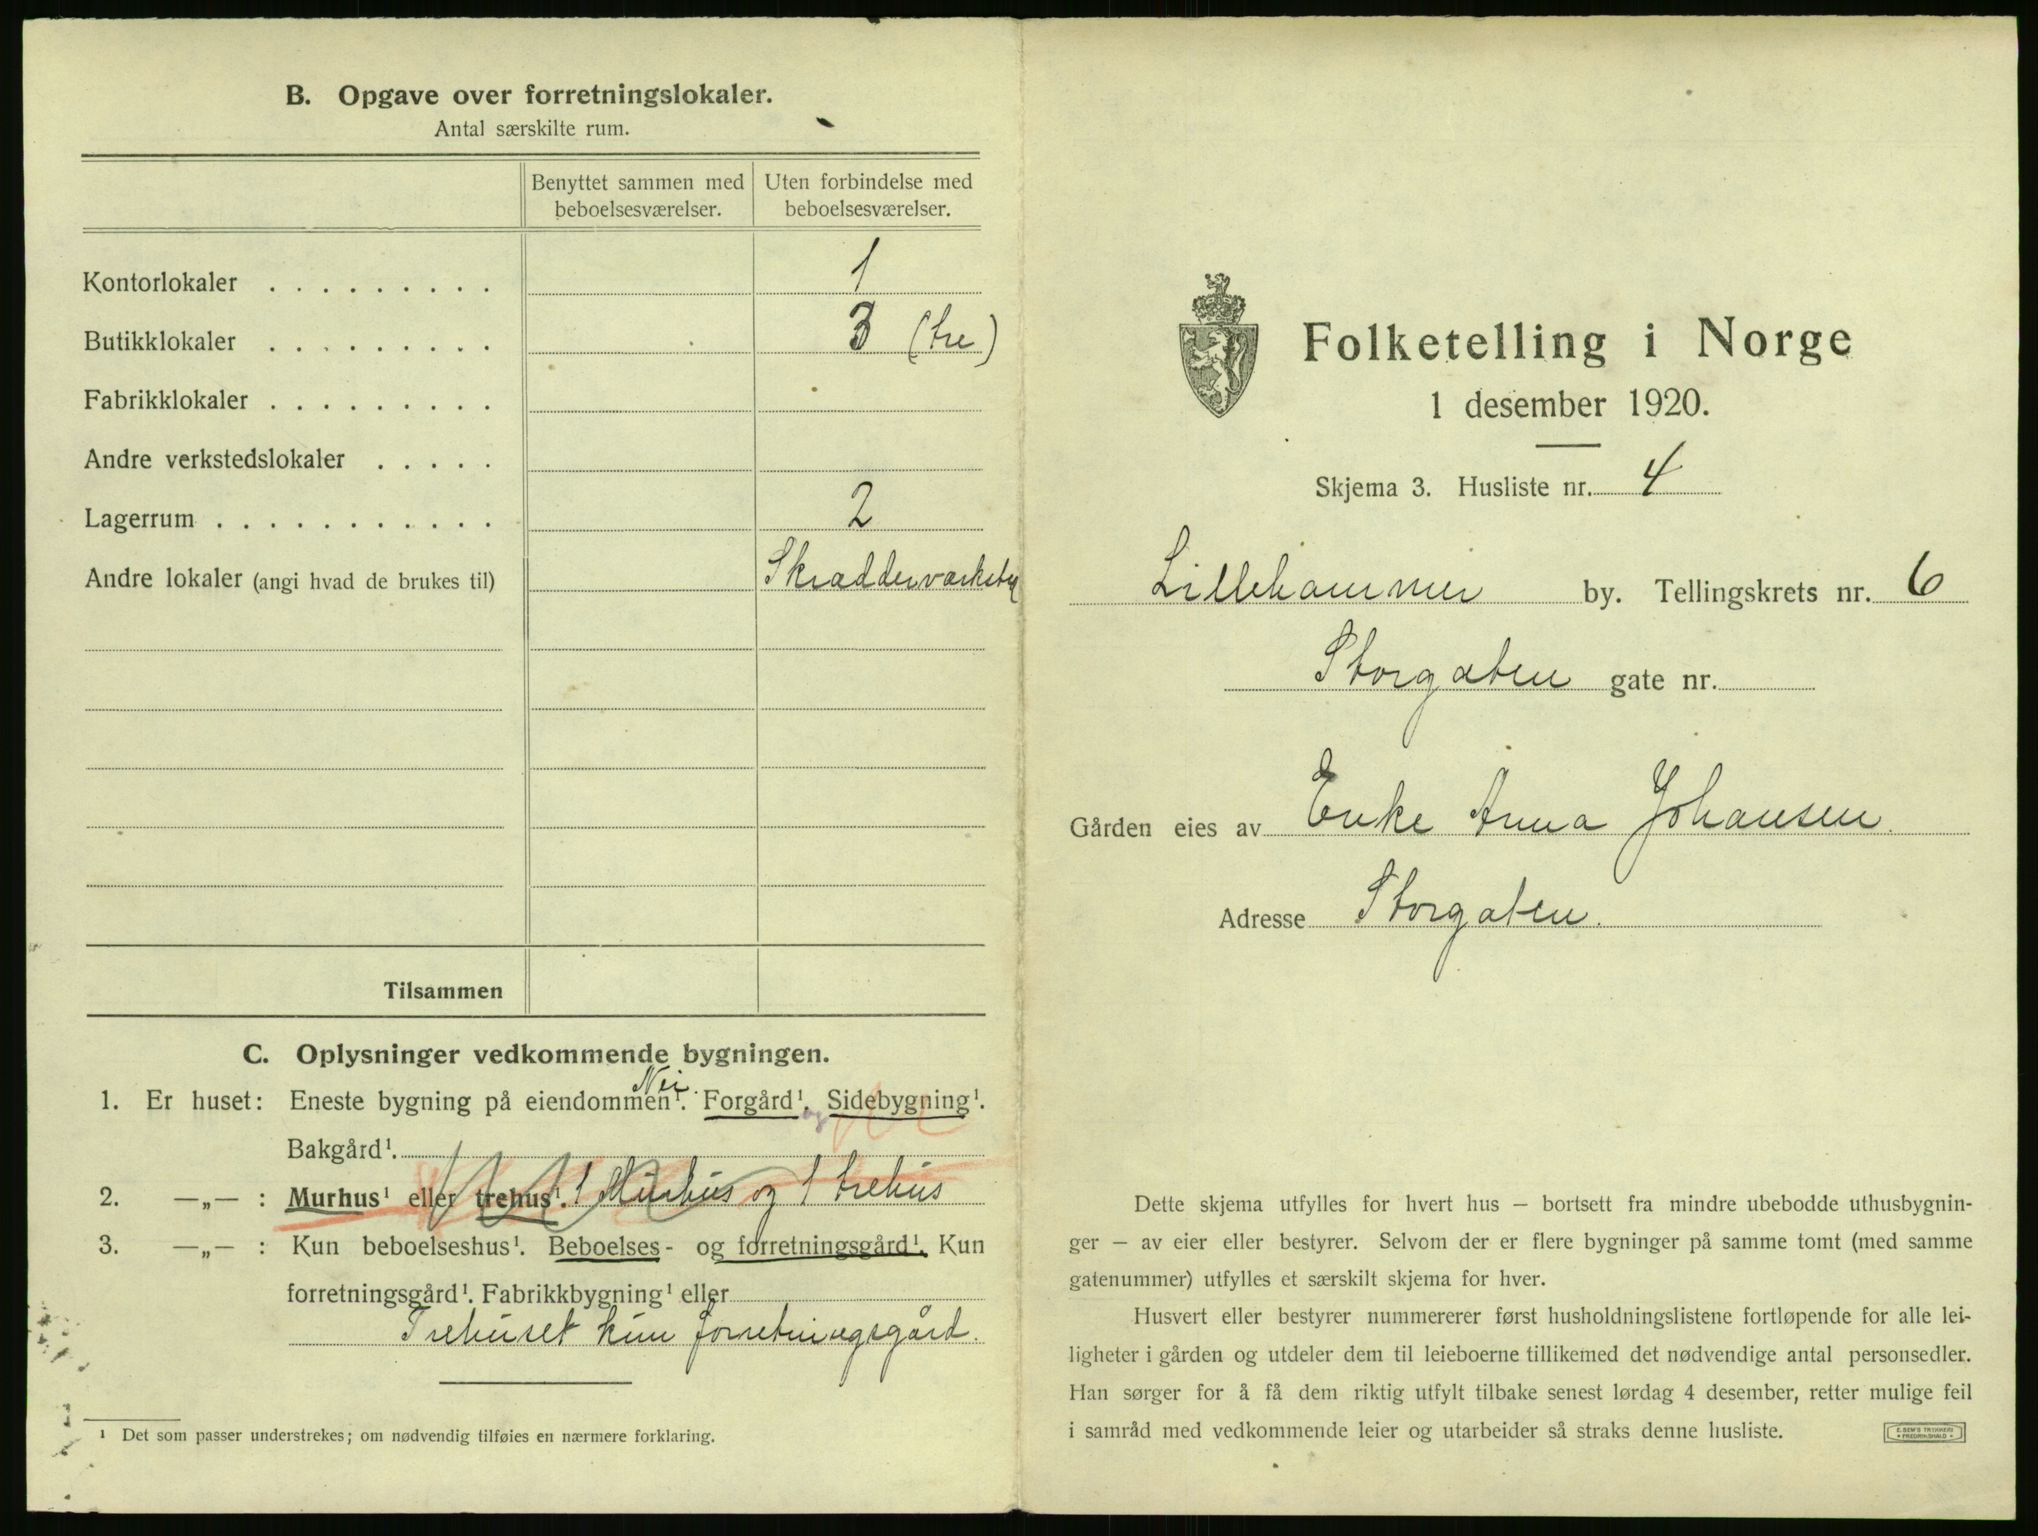 B. Opgave over forretningslokaler.
Antal særskilte rum.
Benyttet sammen med beboelsesværelser.
Uten forbindelse med beboelsesværelser.
Kontorlokaler . . . . . . . . . 1
Butikklokaler . . . . . . . . . 3 (tre)
Fabrikklokaler . . . . . . . . .
Andre verkstedslokaler . . . . .
Lagerrum . . . . . . . . . . . . 2
Andre lokaler (angi hvad de brukes til) Skrædderværksted
Tilsammen
C. Oplysninger vedkommende bygningen.
Nei
1. Er huset: Eneste bygning på eiendommen¹. Forgård¹. og Sidebygning¹.
Bakgård¹.
2. —„— : Murhus¹ eller trehus¹. 1 Murhus og 1 trehus
3. —„— : Kun beboelseshus¹. Beboelses- og forretningsgård¹. Kun
forretningsgård¹. Fabrikkbygning¹ eller
Trehuset kun forretningsgård.
¹ Det som passer understrekes; om nødvendig tilføies en nærmere forklaring.
Folketelling i Norge
1 desember 1920.
Skjema 3. Husliste nr. 4
Lillehammer by. Tellingskrets nr. 6
Storgaten gate nr.
Gården eies av Enke Anna Johansen.
Adresse Storgaten.
Dette skjema utfylles for hvert hus – bortsett fra mindre ubebodde uthusbygnin-
ger – av eier eller bestyrer. Selvom der er flere bygninger på samme tomt (med samme
gatenummer) utfylles et særskilt skjema for hver.
Husvert eller bestyrer nummererer først husholdningslistene fortløpende for alle lei-
ligheter i gården og utdeler dem til leieboerne tillikemed det nødvendige antal personsedler.
Han sørger for å få dem riktig utfylt tilbake senest lørdag 4 desember, retter mulige feil
i samråd med vedkommende leier og utarbeider så straks denne husliste.
E. SEM'S TRYKKERI
FREDRIKSHALD